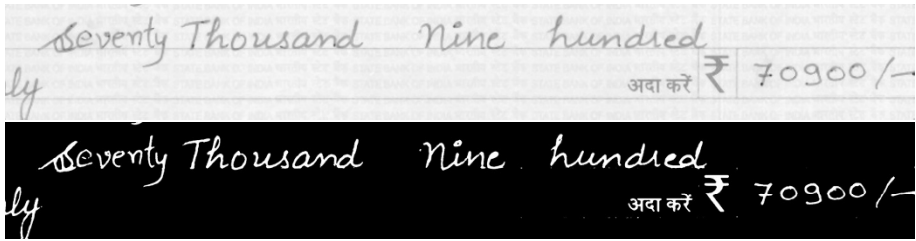 Seventy Thousand Nine hundred
ly अदा करें ₹ 70900/-
Seventy Thousand Nine hundred
ly अदा करें ₹ 70900/-